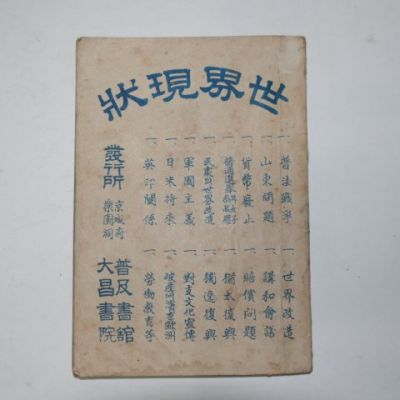 世界現狀
一、普法戰爭 一、世界改造
一、山東問題 一、講和會議
一、貨幣廢止 一、賠償問題
一、普通選擧 一、猶太復興
一、民衆의世界改造 一、獨逸復興
一、軍國主義 一、對支文化宣傳
一、日米將來 一、破産에瀕한歐洲
一、英印關係 一、勞働敎育等
發行所
京城府
樂園洞
普及書舘
大昌書院